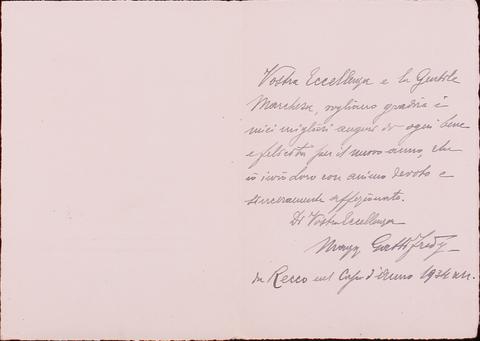 Vostra Eccellenza e la Gentile
Marchesa, vogliano gradire i
miei migliori auguri di ogni bene
e felicità per il nuovo anno, che
io invio loro con animo devoto e
sinceramente affezionato.
Di Vostra Eccellenza
da Recco nel Capo d'Anno 1934 XII.